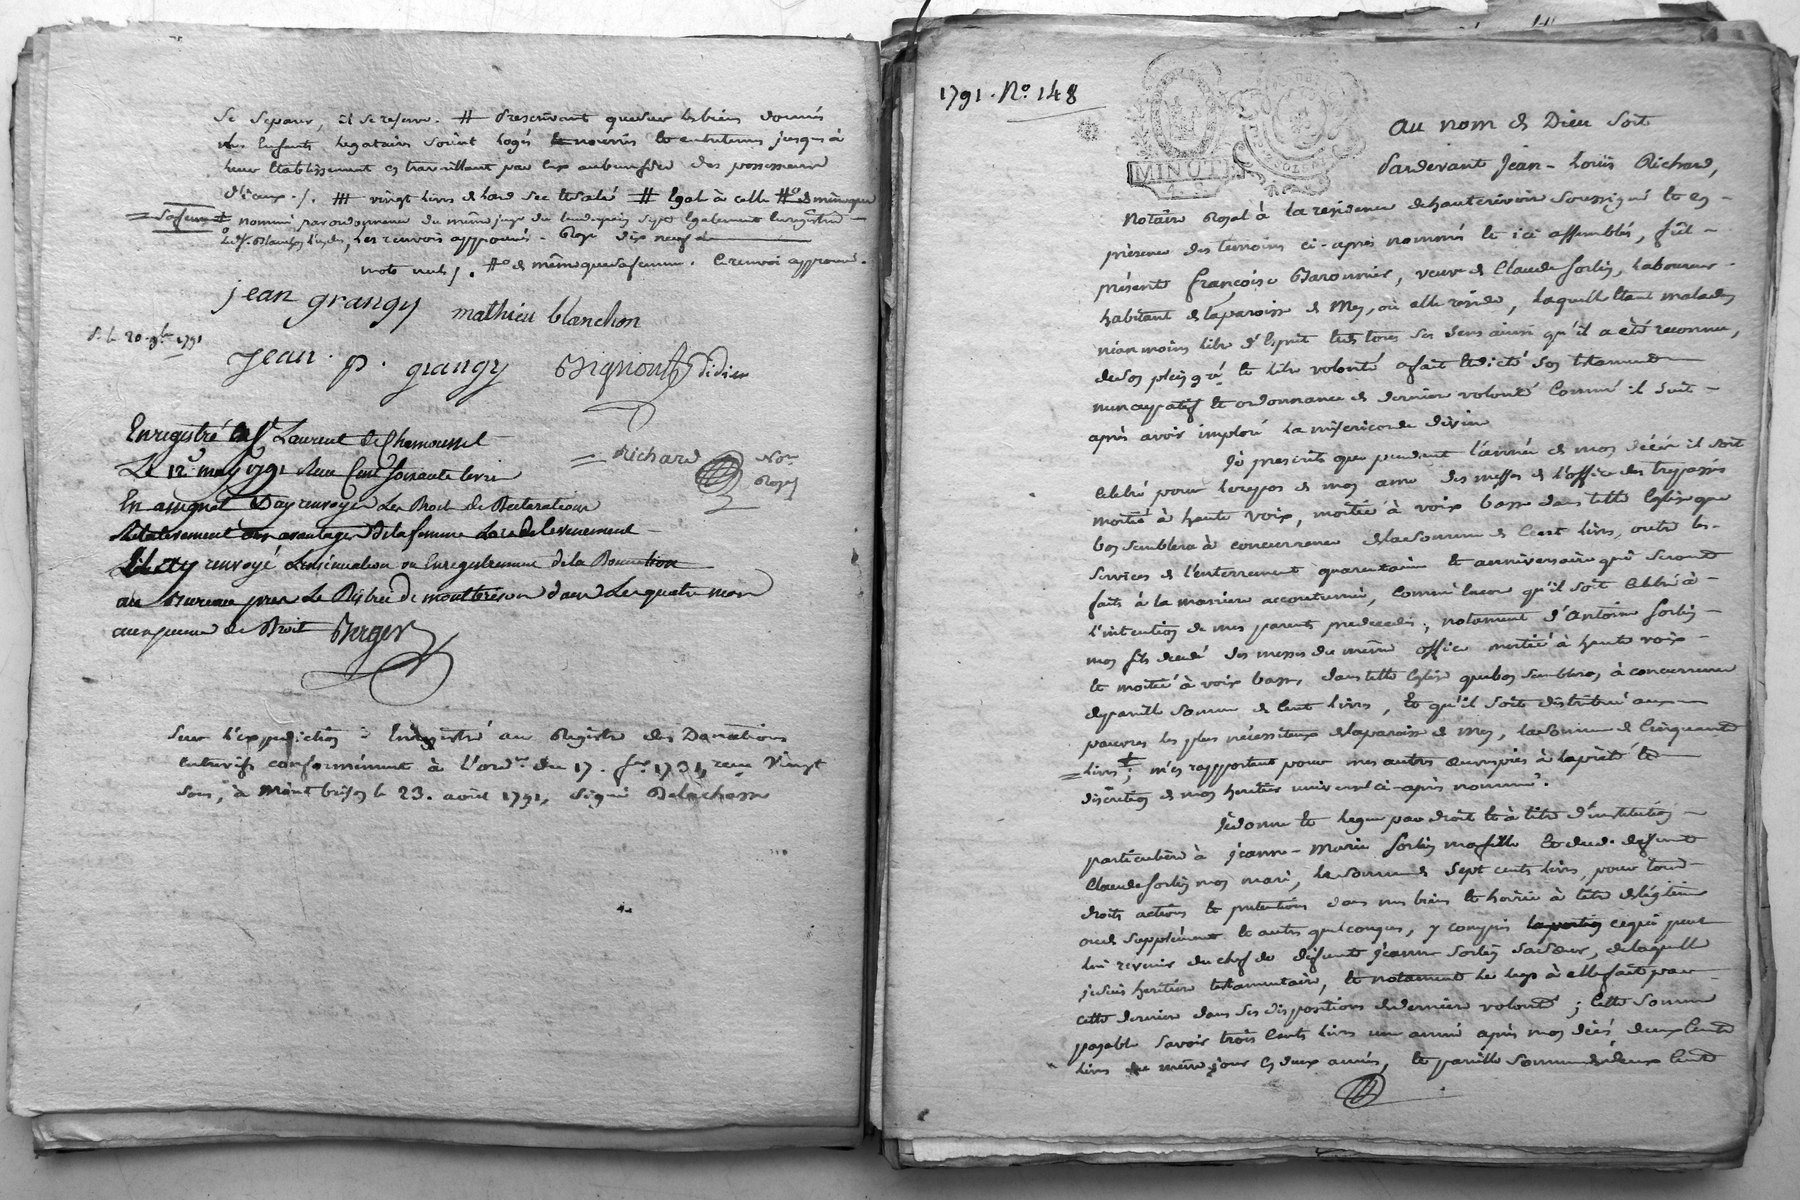 se separer, il se reserve. # Prescrivant que sur les biens donnés
mes Enfants legataires soient logés nourris et entretenus jusques à
leur Etablissement en travaillant par eux au benefice des possesseurs
d'iceux ./. ### vingt livres de lard sec et salé # Egal à celle #o de même que
= sa femme + nommé par ordonnance du même juge du également Enregistrée
les renvois approuvés. Page dix neuf
mots nuls ./. #o de même que sa femme. le renvoi approuvé.
jean grangy mathieu blanchon
S. le 20. 9bre 1791
jean . p . grangy Bignont didier
= Richard Nore
Royal
Enregistré à St Laurent de Chamousset
Le 12 may 1791 Recu Cent soixante livres
En assignat Day renvoyé Les Droit de Declaration
Relativement aux avantages de la femme Lors de l'evenement
Et ay renvoyé L'insinuation ou Enregistrement de la Donnation
au Bureau pres Le District de montbrison dans Les quatre mois
aussy peine de Droit Berger
sur l'expedition : Enregistré au Registre des Donations
entrevifs conformément à l'ordce du 17. fer 1731, recu Vingt
sous, à montbrison le 23. août 1791, signé Delachasse
1791. No. 148
MINUTE
4. S.
Au nom de Dieu soit
Pardevant Jean-Louis Richard,
Notaire Royal à la residence de hauterivoire soussigné et en
présence des temoins ci-après nommés et ici assemblés, fût
présente françoise Baronnier, veuve de Claude forlin, laboureur
habitant de la paroisse de Mey, où elle reside, laquelle étant malade
néanmoins libre d'Esprit et de tous ses sens ainsi qu'il a été reconnu,
de son plein gré et libre volonté a fait et dicté son testament
nuncupatif et ordonnance de derniere volonté comme il suit
après avoir imploré la misericorde divine
Je prescrits que pendant l'année de mon décés il soit
celebré pour le repos de mon ame des messes de l'office des trepassés
moitié à haute voix, moitié à voix basse dans telle Eglise que
bon semblera à concurrence de la somme de Cent livres, outre les
services de l'enterrement quarantaine et anniversaire qui seront
faits à la maniere accoutumée, comme encore qu'il soit celebré à
l'intention de mes parents predecedés, notament d'Antoine forlin
mon fils decedé des messes du même office moitié à haute voix
et moitié à voix basse, dans telle Eglise que bon semblera à concurrence
de pareille somme de Cent livres, et qu'il soit distribué aux
pauvres les plus nécessiteux de la paroisse de Mey, la somme de Cinquante
= livres + ; m'en rapportant pour mes autres œuvres pies à la pieté et
discretion de mon heritier universel ci-après nommé.
Je donne et legue par droit et à titre d'institution
particuliere à jeanne-Marie forlin ma fille et dud. defunt
Claude forlin mon mari, la somme de sept cents livres, pour tous
droits actions et pretentions dans mes biens et hoirie à titre de légitime
ou de supplément et autres quelconques, y compris la portion ce qui peut
lui revenir du chef de defunte jeanne forlin sa sœur, de laquelle
je suis heritiere testamentaire, et notament le legs à elle fait par
cette derniere dans ses dispositions de derniere volonté ; cette somme
payable savoir trois Cents livres une année après mon décés, deux Cents
livres le même jour en deux années, et pareille somme de deux Cents